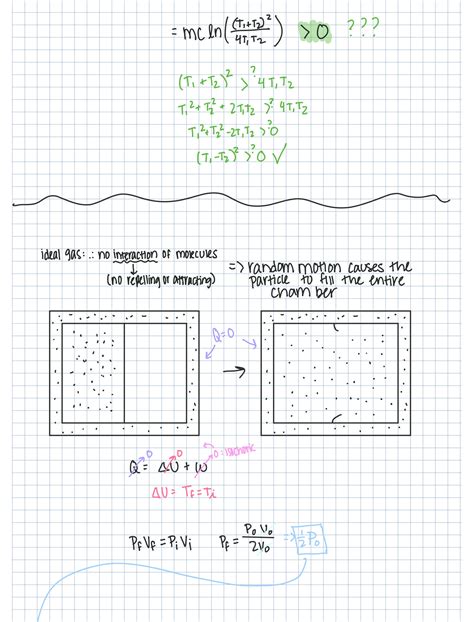 = mc ln((T₁+T₂)²/4T₁T₂) >0 ???
(T₁+T₂)² >? 4T₁T₂
T₁²+T₂²+2T₁T₂ >? 4T₁T₂
T₁²+T₂²-2T₁T₂ >? 0
(T₁-T₂)² >? 0 ✓
ideal gas: ∴ no interaction of molecules
(no repelling or attracting)
=> random motion causes the
particle to fill the entire
chamber
Q=0
→
0 0 0: isochoric
Q = ΔU + W
ΔU = TF = Ti
PFVF = PiVi PF = P₀V₀/2V₀ => ½P₀